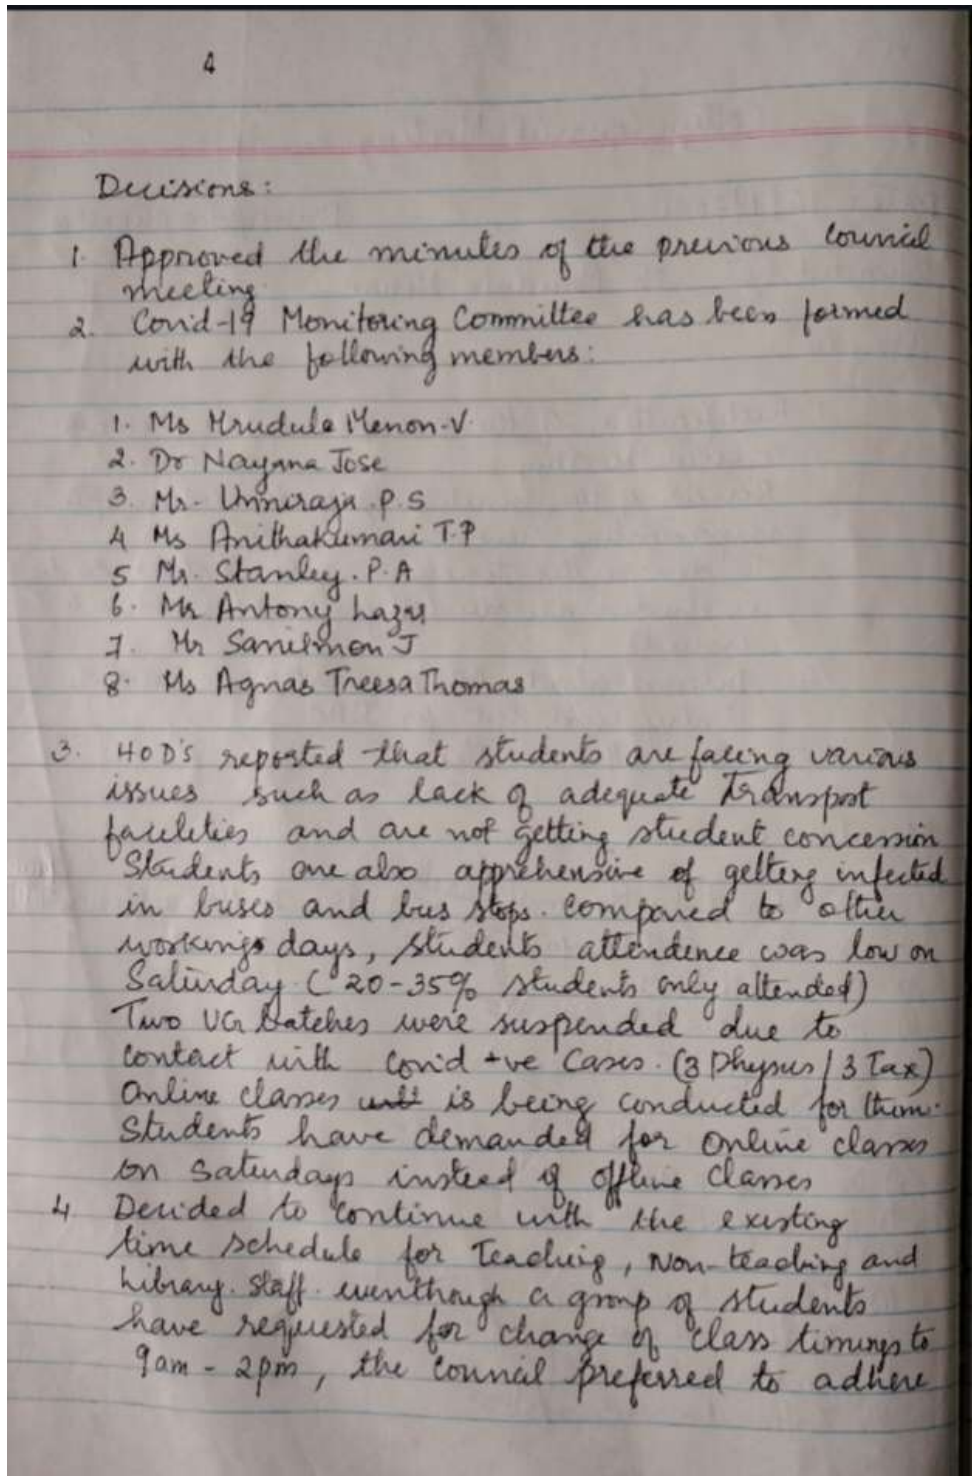 4
Decisions:
1. Approved the minutes of the previous Council
meeting
2. Covid-19 Monitoring Committee has been formed
with the following members:
1. Ms Mrudula Menon-V
2. Dr Nayana Jose
3. Mr. Unniraja .P.S
4 Ms Anithakumari T.P
5 Mr. Stanley. P.A
6. Mr Antony Lazar
7. Mr Sanilmon J
8. Ms Agnas Treesa Thomas
3. HOD's reported that students are facing various
issues such as lack of adequate Transport
facilities and are not getting student concession
Students are also apprehensive of getting infected
in buses and bus stops. Compared to other
workings days, students attendence was low on
Saturday (20-35% students only attended)
Two UG batches were suspended due to
contact with Covid +ve Cases. (3 Physics / 3 Tax)
Online classes is being conducted for them.
Students have demanded for online classes
on Saturdays instead of offline Classes
4 Decided to continue with the existing
time schedule for Teaching, Non-teaching and
Library. Staff. eventhough a group of students
have requested for change of class timings to
9am - 2pm, the Council preferred to adhere